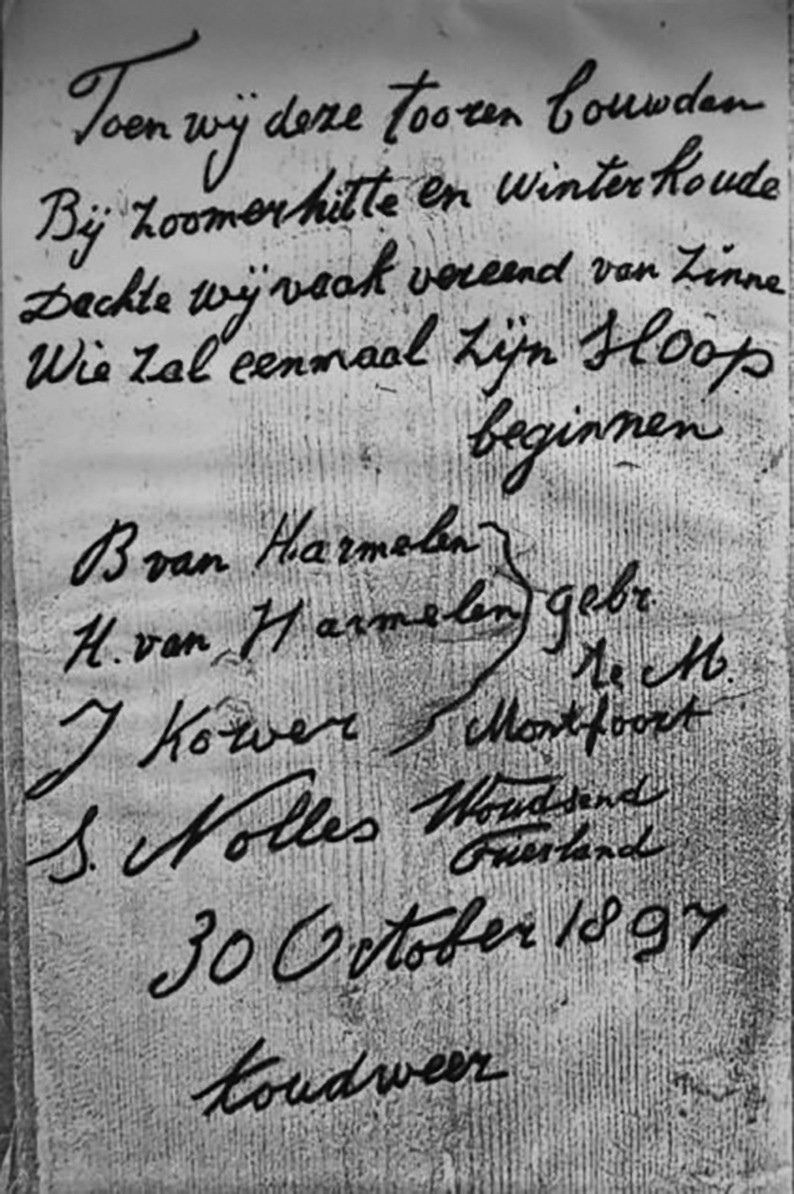 Toen wij deze tooren bouwden
Bij zoomerhitte en winterkoude
Dachte wij vaak vereend van zinne
Wie zal eenmaal zijn sloop
beginnen
B van Harmelen
H. van Harmelen gebr.
te M.
J Kower Montfoort
S. Nolles Woudsend
Friesland
30 October 1897
koudweer